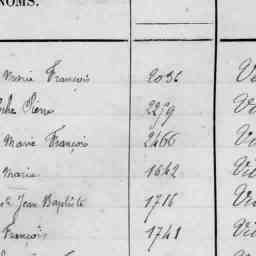 NOMS.
Marie François 2036 Vi
Pierre 2279 Vi
Marie François 2466 Vi
Marie 1642 Vi
Jean Baptiste 1716 Vi
François 1741 Vi